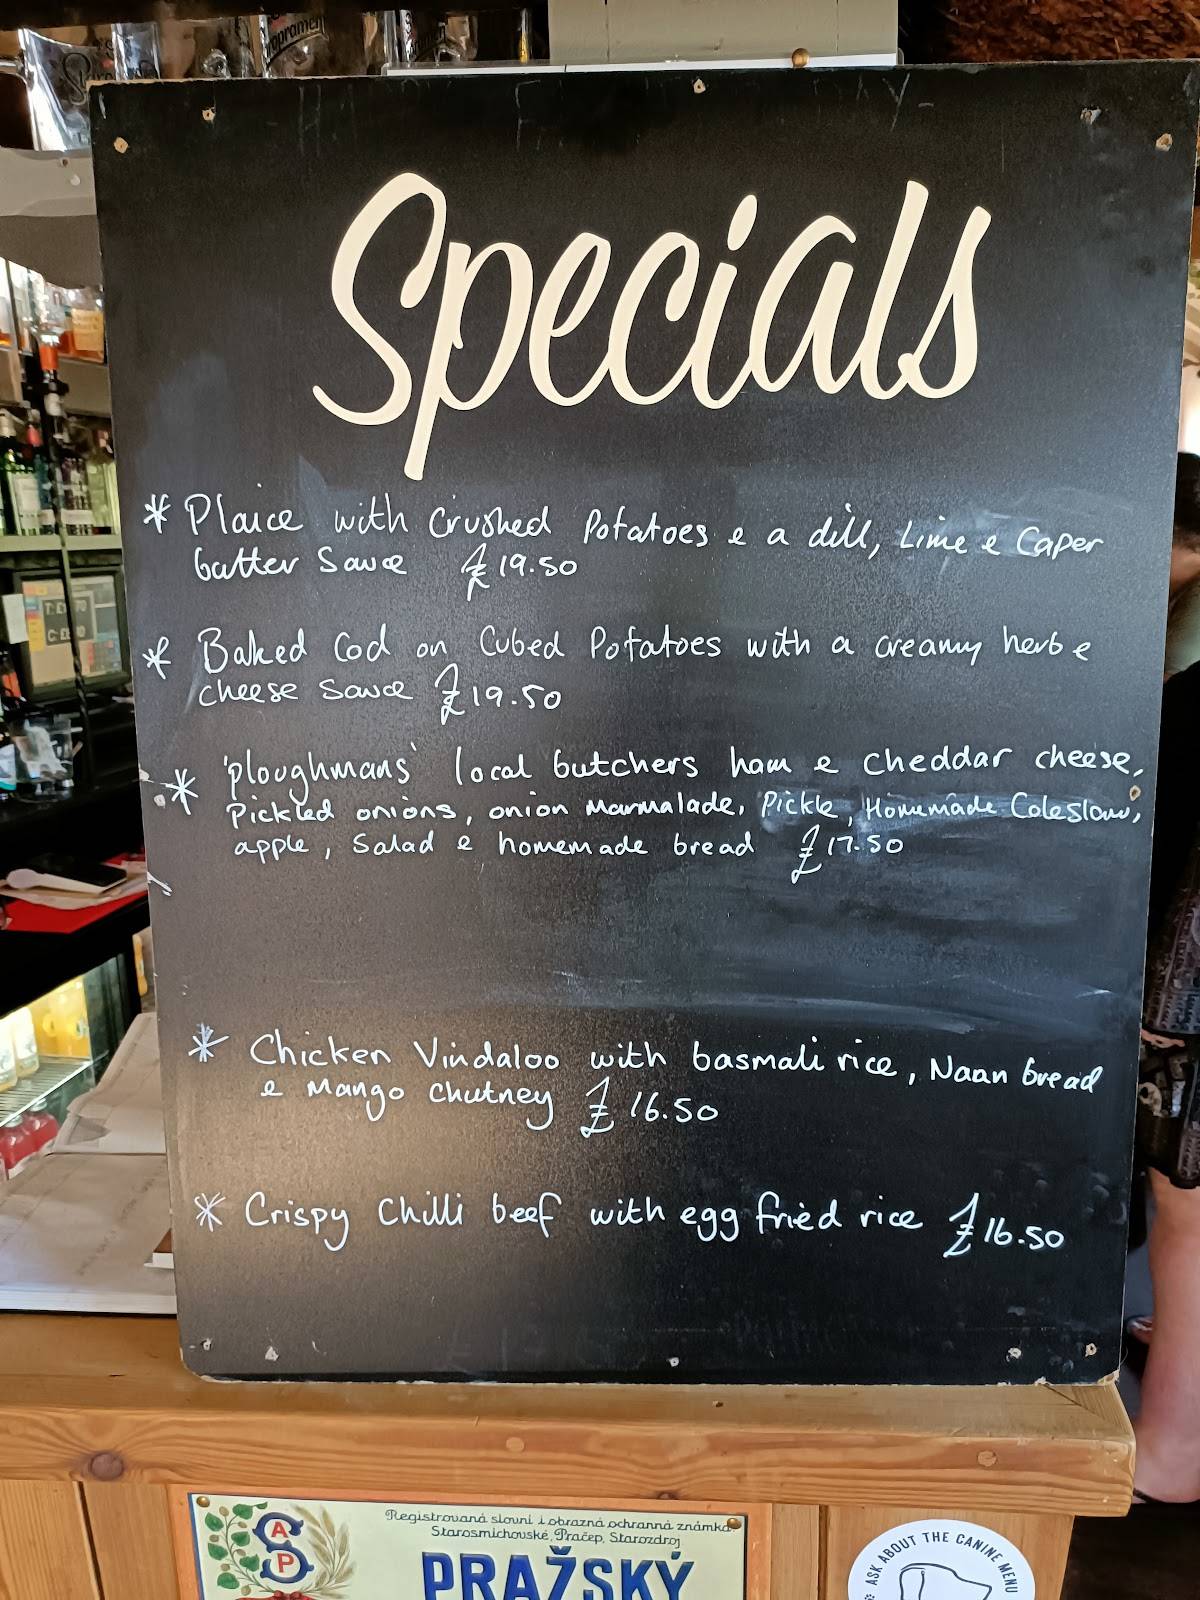 Specials
* Plaice with Crushed Potatoes e a dill, Lime e Caper
butter Sauce £19.50
* Baked Cod on Cubed Potatoes with a creamy herb e
cheese Sauce £19.50
* 'ploughmans' local butchers ham e cheddar cheese,
Pickled onions, onion Marmalade, Pickle, Homemade Coleslaw,
apple, Salad e homemade bread £17.50
* Chicken Vindaloo with basmati rice, Naan bread
e Mango Chutney £16.50
* Crispy Chilli beef with egg fried rice £16.50
Registrovaná slovní i obrazná ochranná známka
Starosmichovské, Pračep, Starozdroj
A
S
P
PRAŽSKÝ
ASK ABOUT THE CANINE MENU